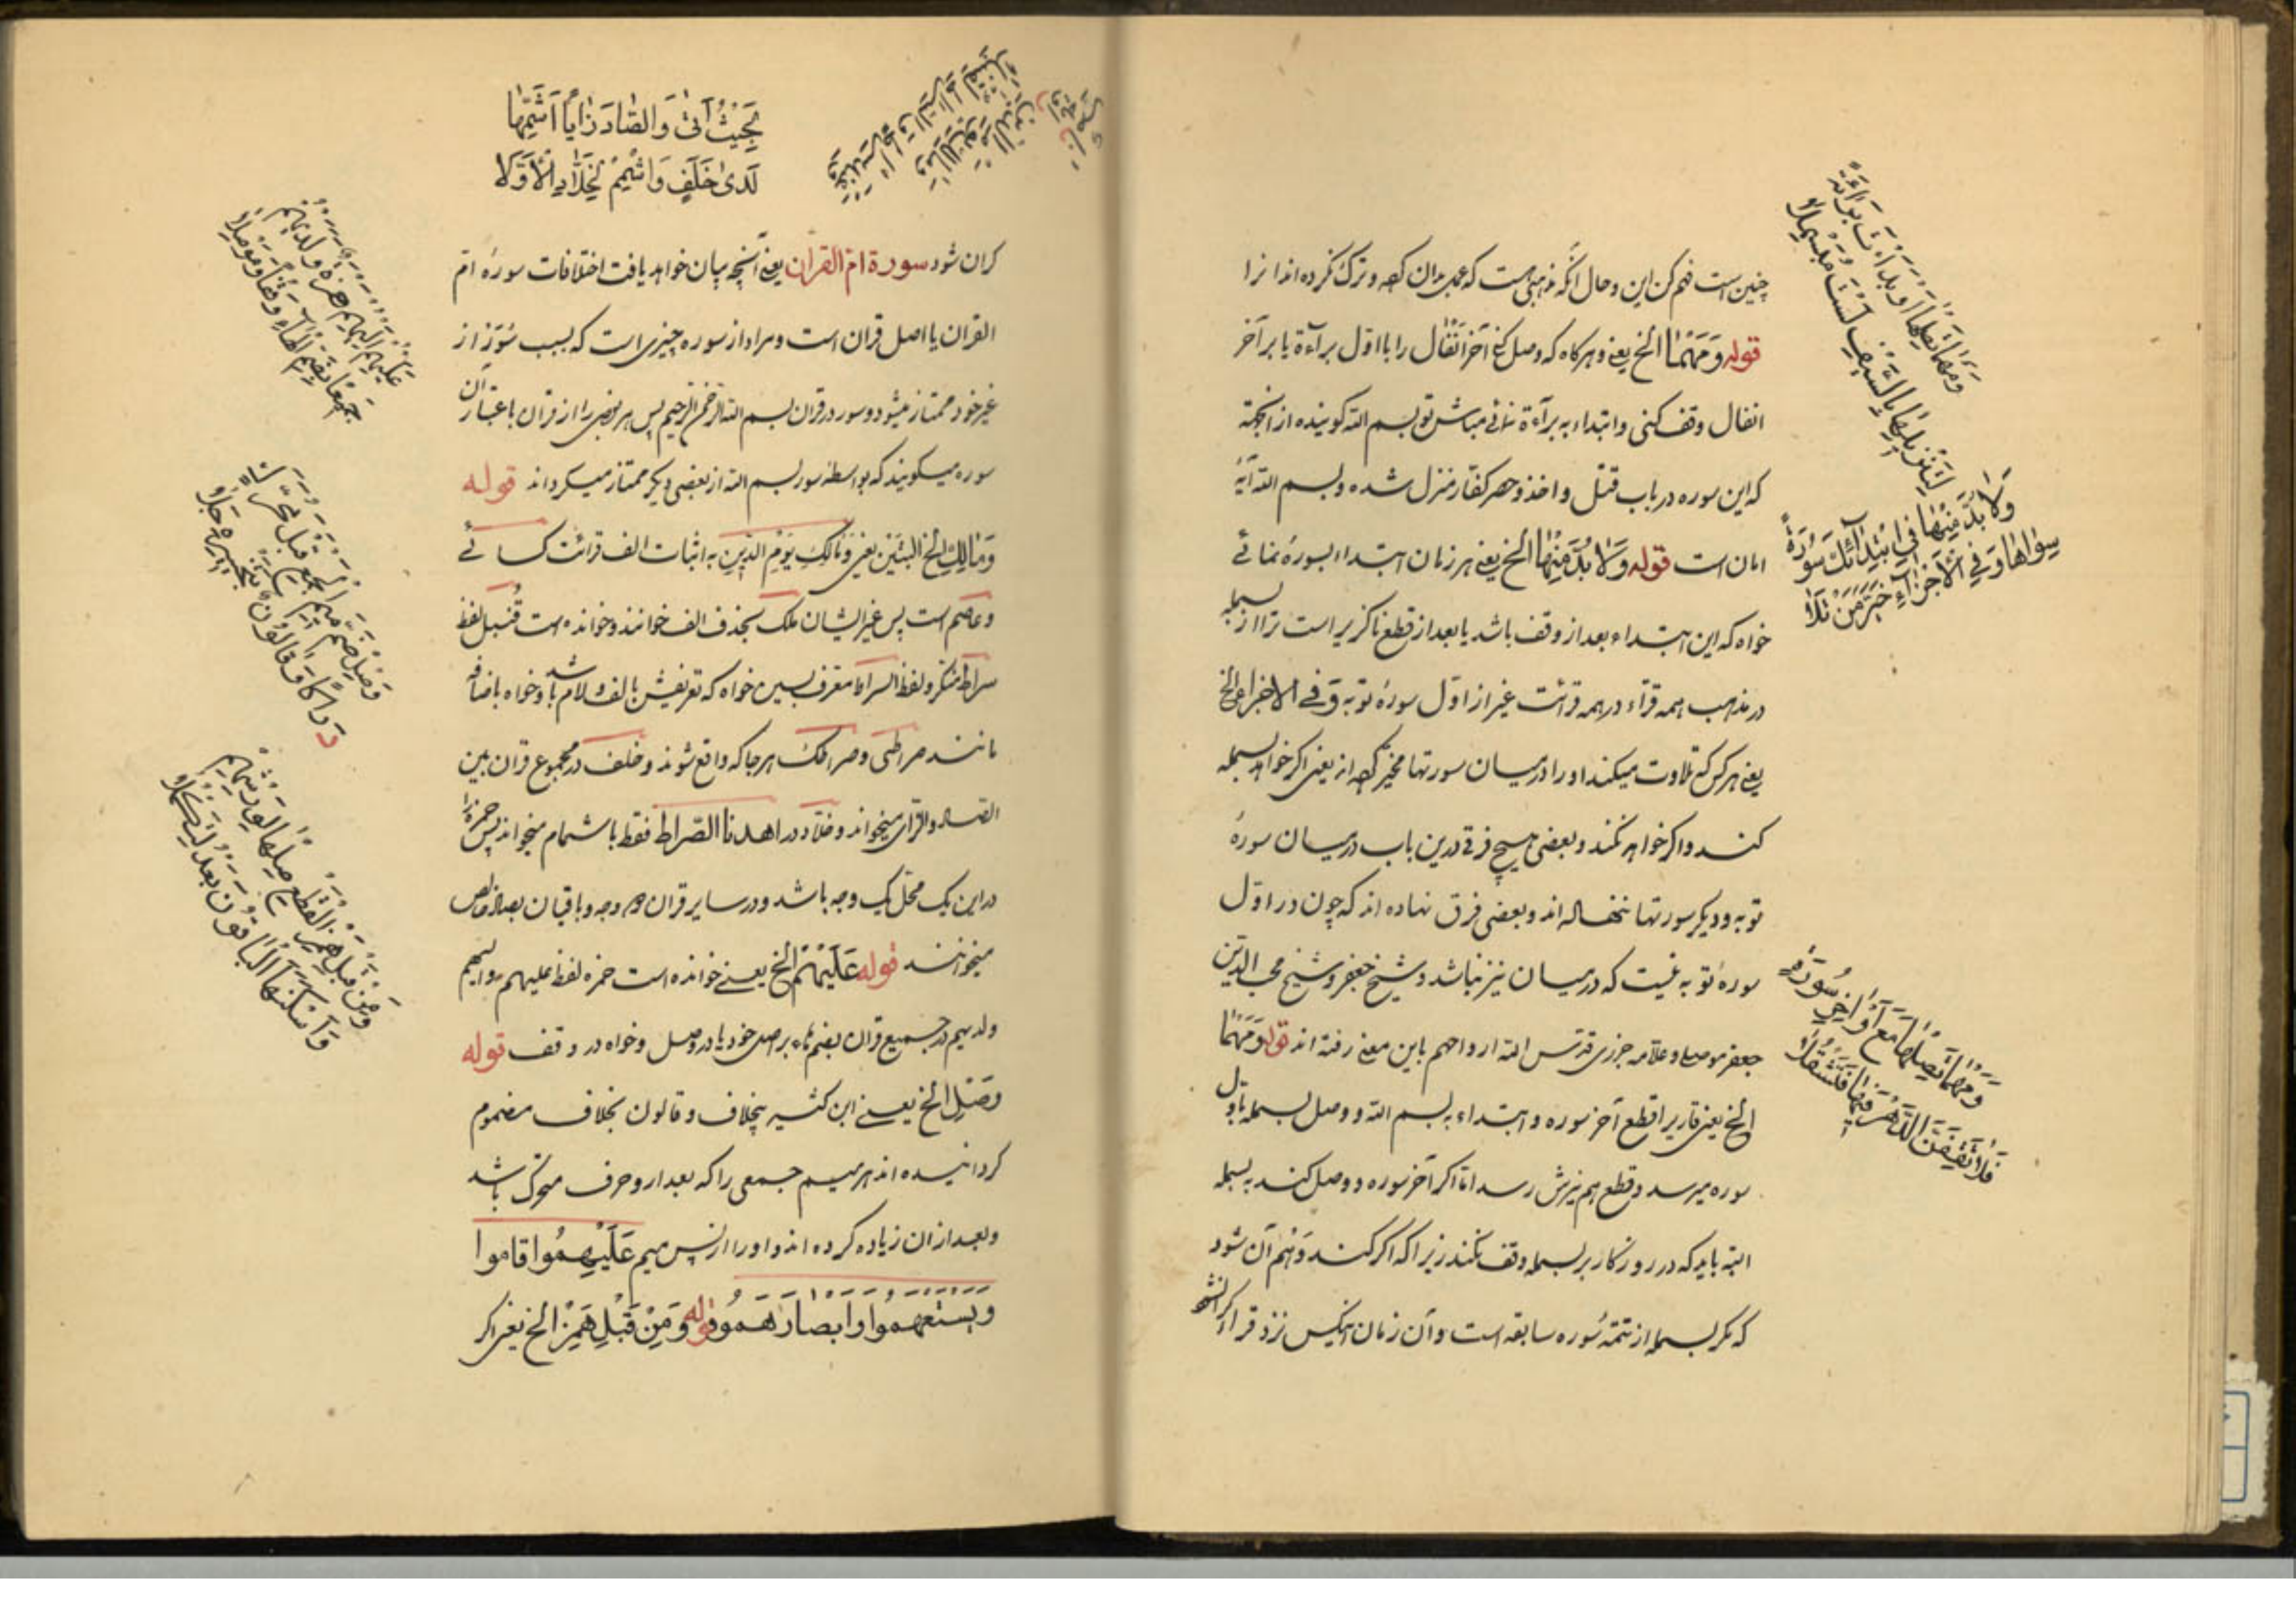 چنین است فهم کن این و حال آنکه مذهبی است که عمل بدان کهه و ترک نکرده اند انرا
قوله وَمَهْمَا الخ یعنی و هرکاه که وصل کنی آخر انفال را با اول برآءة یا بر آخر
انفال وقف کنی و ابتداء به برآءة نمائی مباش تو بسم الله کوینده از انجهة
که این سوره در باب قتل و اخذ و حصر کفار منزل شده و بسم الله آیهٔ
امان است قوله وَلَا بُدَّ مِنْهَا الخ یعنی هر زمان ابتداء بسورهٔ نمائی
خواه که این ابتداء بعد از وقف باشد یا بعد از قطع ناکزیر است ترا از بسمله
در مذهب همه قرآء در همه قرائت غیر از اول سورهٔ توبه وَفی الاجزاء الخ
یعنی هر کس که تلاوت میکند او را در میان سورتها مخیر کهه اند یعنی اکر خواهد بسمله
کند و اکر خواهد نکند و بعضی هیچ فرقی درین باب در میان سورهٔ
توبه و دیکر سورتها ننهاده اند و بعضی فرق نهاده اند که چون در اول
سورهٔ توبه نیست که در میان نیز نباشد و شیخ جعفر و شیخ محب الدین
جعفر موصلی و علامه جزری قدس الله ارواحهم باین معنی رفته اند قوله وَمَهْمَا
الخ یعنی قاری را قطع آخر سوره و ابتداء به بسم الله و وصل بسمله باول
سوره میرسد و قطع هم نیزش رسد اما اکر آخر سوره و وصل کند به بسمله
البته باید که در روزکار بر بسمله وقف نکند زیرا که اکر کند وهم آن شود
که مکر بسمله از تتمهٔ سوره سابقه است و آن زمان انکس نزد قراء اکرانش
وَمَهْمَا تَصِلْهَا اَوْ بَدَاْتَ بَرَاءَةً
لِتَنْزِيلِهَا بِالسَّيْفِ لَسْتَ مُبَسْمِلَا
وَلَا بُدَّ مِنْهَا فِي ابْتِدَآئِكَ سُورَةً
سِوَاهَا وَفِي الْاَجْزَآءِ خَيَّرَ مَنْ تَلَا
وَمَهْمَا تَصِلْهَا مَعْ اَوَاخِرِ سُورَةٍ
فَلَا تَقِفَنَّ الدَّهْرَ فِيهَا فَتَثْقُلَا
وَمَالِكِ يَوْمِ الدِّينِ
بِحَيْثُ اَتٰى وَالصَّادَ زَايًا اَشِمَّهَا
لَدٰى خَلَفٍ وَاشْمِمْ لِخَلَّادِ الْاَوَّلَا
کران شود سورة ام القرآن یعنی آنچه بیان خواهد یافت اختلافات سورهٔ ام
القران یا اصل قران است و مراد از سوره چیزی است که بسبب سُوَر از
غیر خود ممتاز میشود و سور در قران بسم الله الرحمن الرحیم پس هر بعضی را از قران باعتبار آن
سوره میکویند که بواسطه سور بسم الله از بعضی دیکر ممتاز میکرداند قوله
وَمَالِكِ الخ البیتین یعنی وَمَالِكِ يَوْمِ الدِّينِ به اثبات الف قرائت کسائی
و عاصم است پس غیر ایشان ملک بحذف الف خوانند و خوانده است قُنبل لفظ
سراط منکر و لفظ السراط معرف بسین خواه که تعریفش بالف و لام باشد و خواه باضافه
مانند صراطی و صراطک هر جا که واقع شوند و خلف در مجموع قران بین
الصاد و الزای میخواند و خلاد در اهدنا الصراط فقط باشمام میخواند پس حمزه را
در این یک محل یک وجه باشد و در سایر قران دو وجه و باقیان بصاد خالص
میخوانند قوله عَلَيْهُمْ الخ یعنی خوانده است حمزه لفظ علیهم و الیهم
و لدیهم در جمیع قران بضم هاء بر اصل خود یا در وصل و خواه در وقف قوله
وَصِلْ الخ یعنی ابن کثیر بیخلاف و قالون بخلاف مضموم
کردانیده اند هر میم جمعی را که بعد از او حرف متحرک باشد
و بعد از ان زیاده کرده اند واو را از پس میم عَلَيْهِمُوا قاموا
وَبِسَمْعِهِمُوا وَاَبْصَارِهِمُو قوله وَمِنْ قَبْلِ هَمْزِ الخ یعنی اکر
عَلَيْهِمْ اِلَيْهِمْ حَمْزَةٌ وَلَدَيْهِمْ
جَمِيعًا بِضَمِّ الْهَاءِ وَقْفًا وَمَوْصِلَا
وَصِلْ ضَمَّ مِيمِ الْجَمْعِ قَبْلَ مُحَرَّكٍ
دِرَاكًا وَقَالُونٌ بِتَخْيِيرِهِ جَلَا
وَمِنْ قَبْلِ هَمْزِ الْقَطْعِ صِلْهَا لِوَرْشِهِمْ
وَاَسْكَنَهَا الْبَاقُونَ بَعْدُ لِتَكْمُلَا